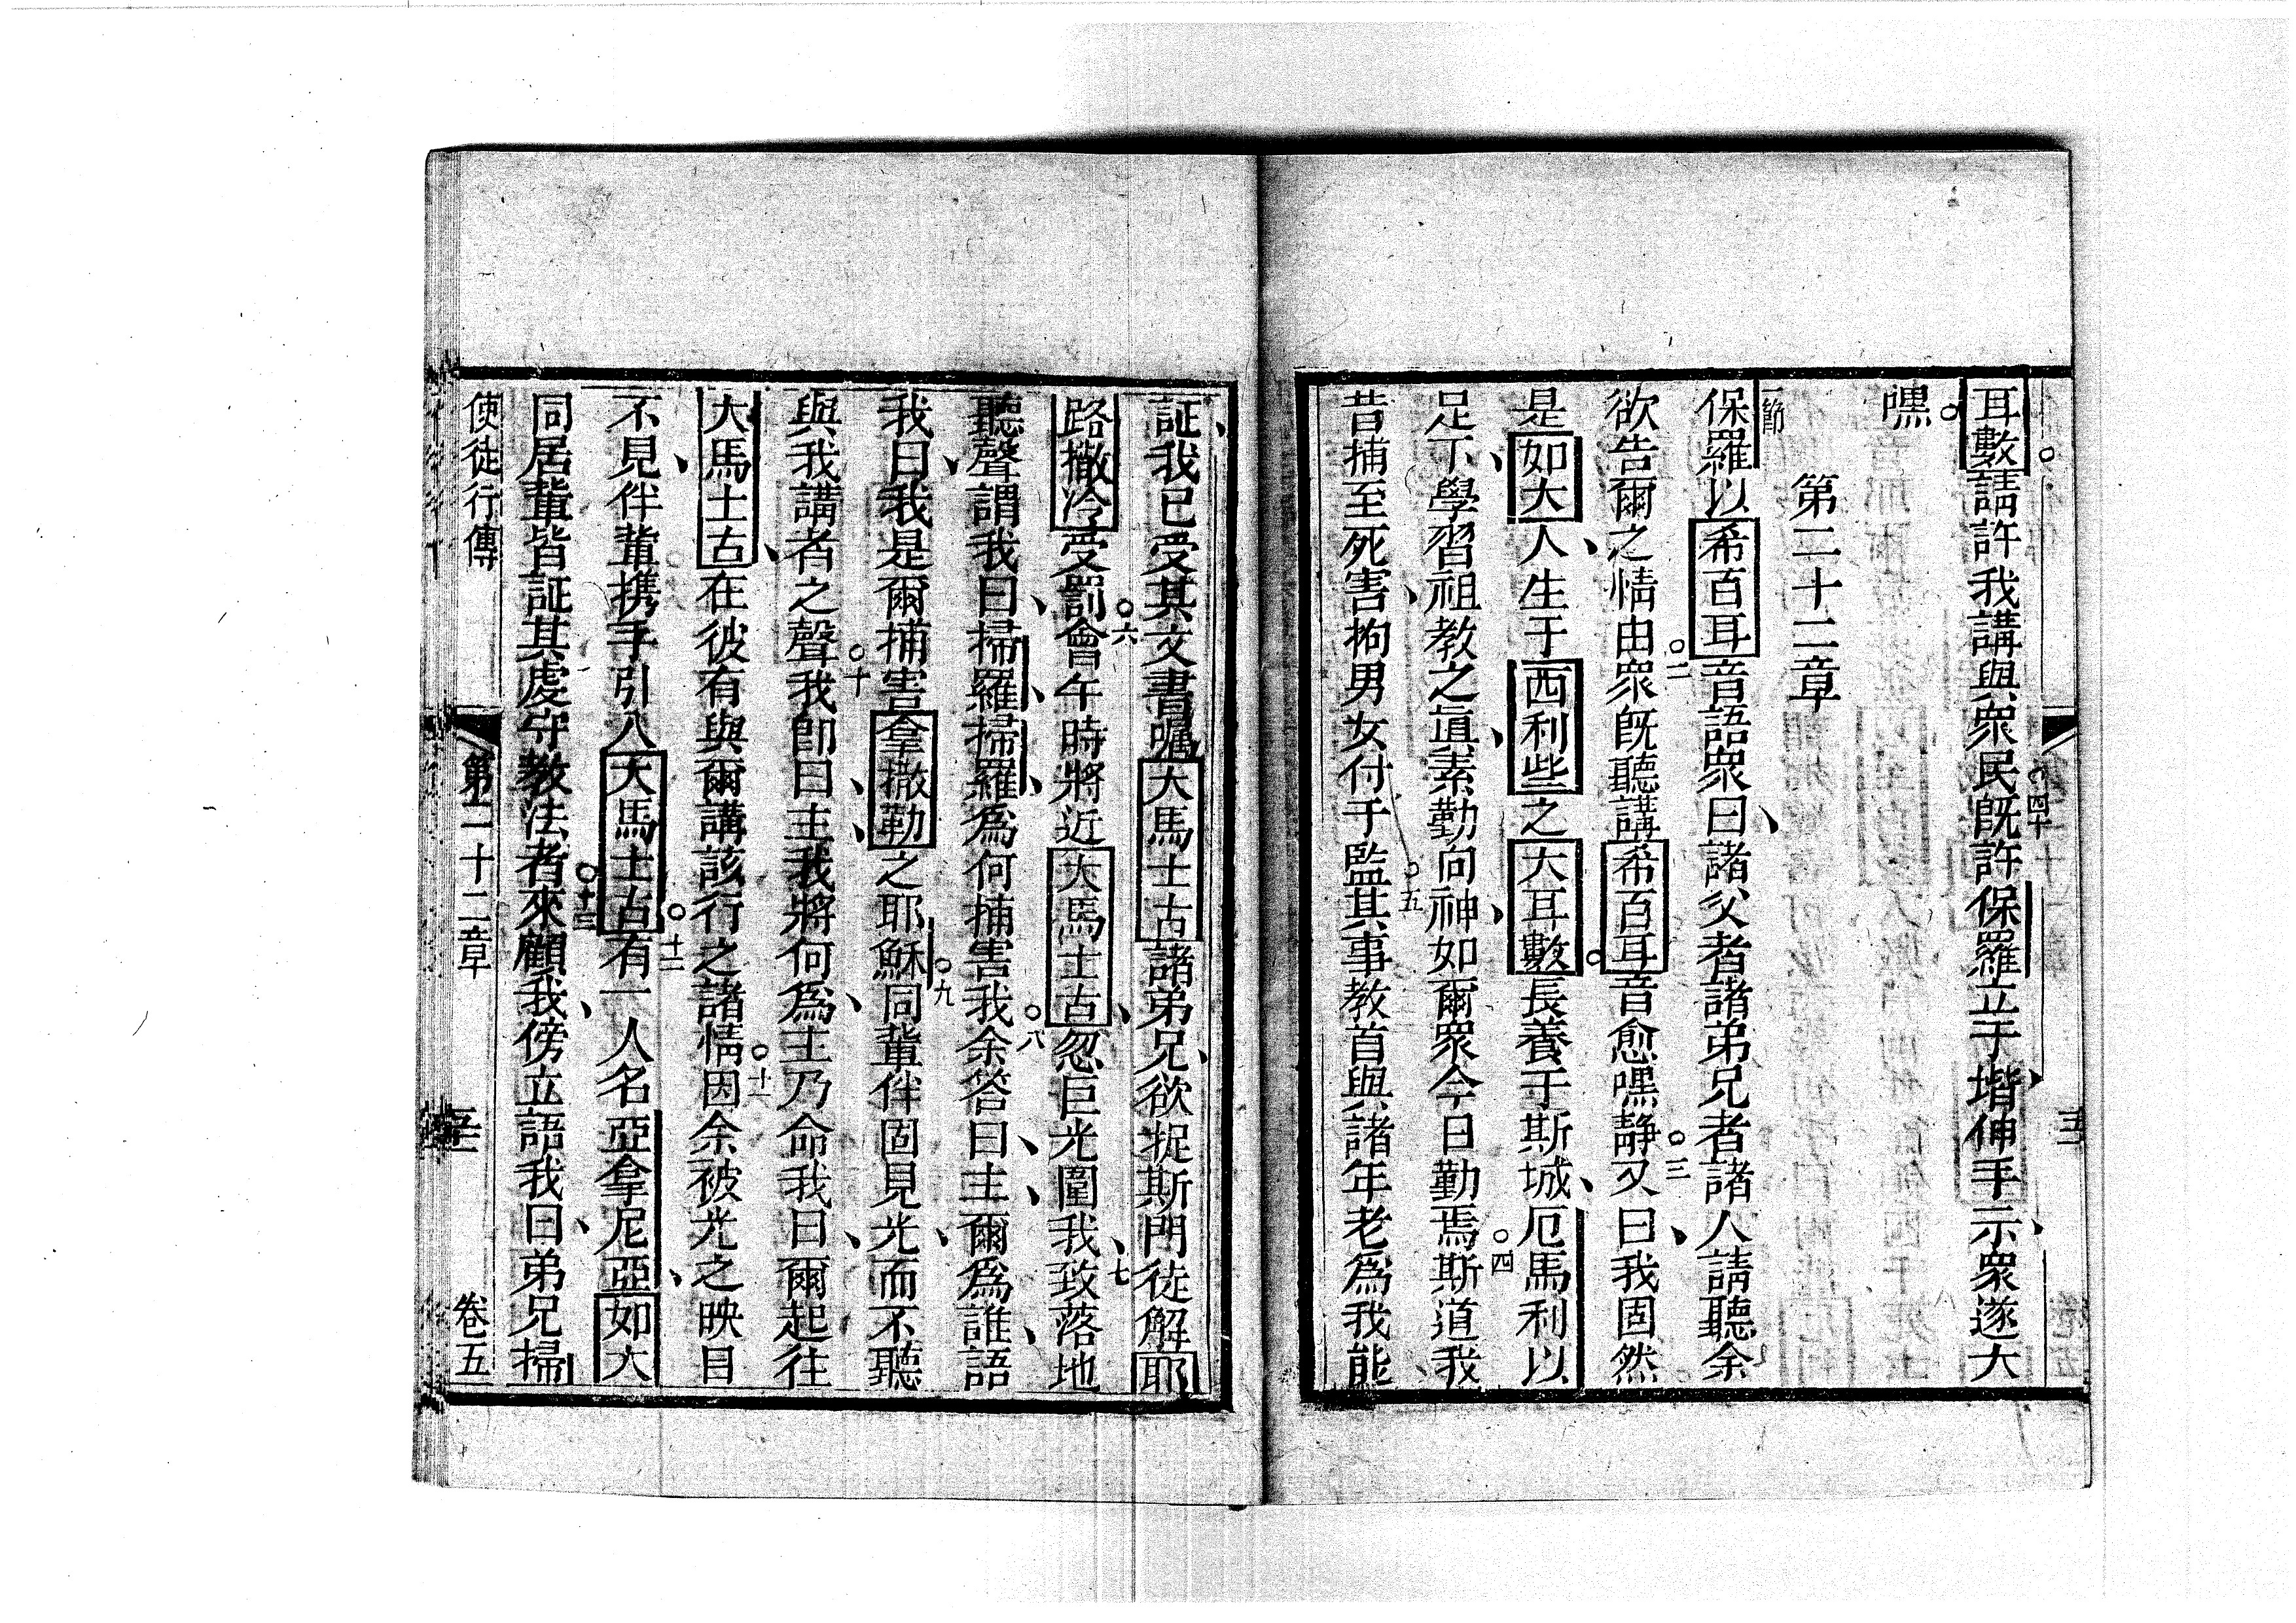 耳數請許我講與眾民既許保羅立于堦伸手示眾遂大
嘿
第二十二章
保羅以希百耳音語眾曰諸父者諸弟兄者諸人請聽余
欲告爾之情由眾既聽講希百耳音愈嘿静又曰我固然
是如大人生于西利些之大耳數長養于斯城厄馬利以
足下學習祖教之道素勤向神如爾眾今日勤焉斯道我
昔捕至死害拘男女付于監其事教首與諸年老為我能
証我已受其文書嘱大馬士古諸弟兄欲捉斯門徒解耶
路撒冷受罰會午時將近大馬士古忽巨光圍我致落地
聽聲謂我曰掃羅掃羅為何捕害我余答曰主爾為誰語
我曰我是爾捕害拿撒勒之耶穌同軰伴固見光而不聽
與我講者之聲我即曰主我將何為主乃命我曰爾起往
大馬士古在彼有與爾講該行之諸情因余被光之映目
不見伴軰携手引入大馬士古有一人名亞拿尼亞如大
同居軰皆証其虔守教法者來顧我傍立語我曰弟兄掃
使徒行傳 第二十二章 卷五